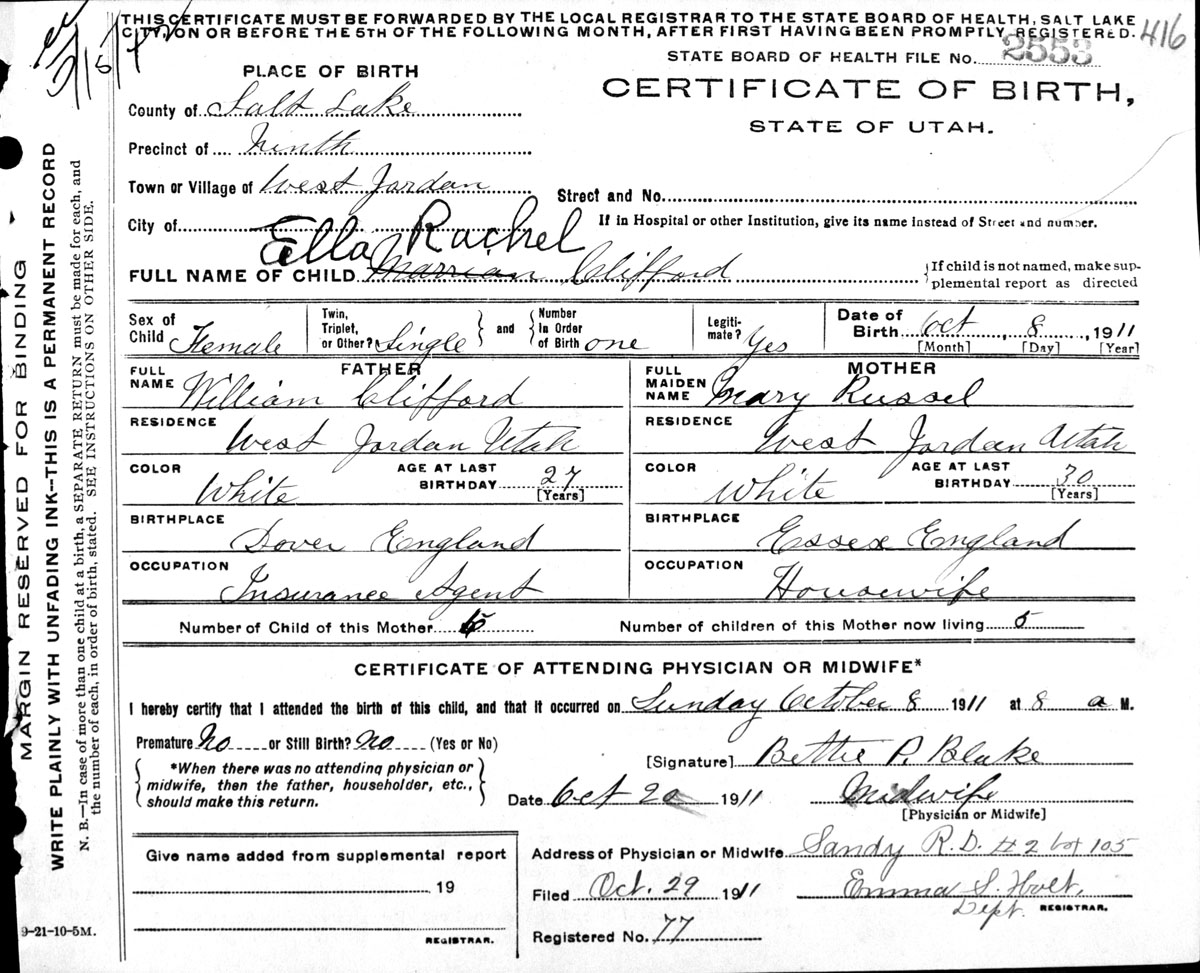 THIS CERTIFICATE MUST BE FORWARDED BY THE LOCAL REGISTRAR TO THE STATE BOARD OF HEALTH, SALT LAKE
CITY, ON OR BEFORE THE 5TH OF THE FOLLOWING MONTH, AFTER FIRST HAVING BEEN PROMPTLY REGISTERED. 416
STATE BOARD OF HEALTH FILE No. 2553
PLACE OF BIRTH
CERTIFICATE OF BIRTH,
STATE OF UTAH.
County of Salt Lake
Precinct of Ninth
Town or Village of West Jordan
Street and No.
City of
If in Hospital or other Institution, give its name instead of Street and number.
Ella Rachel
FULL NAME OF CHILD Marrian Clifford
If child is not named, make sup-
plemental report as directed
Sex of Child Female
Twin, Triplet, or Other? Single and Number In Order of Birth one
Legiti-mate? Yes
Date of Birth Oct 8, 1911
[Month] [Day] [Year]
FATHER
FULL NAME William Clifford
RESIDENCE West Jordan Utah
COLOR White AGE AT LAST BIRTHDAY 27 [Years]
BIRTHPLACE Dover England
OCCUPATION Insurance Agent
MOTHER
FULL MAIDEN NAME Mary Russel
RESIDENCE West Jordan Utah
COLOR White AGE AT LAST BIRTHDAY 30 [Years]
BIRTHPLACE Essex England
OCCUPATION Housewife
Number of Child of this Mother
Number of children of this Mother now living 5
CERTIFICATE OF ATTENDING PHYSICIAN OR MIDWIFE*
I hereby certify that I attended the birth of this child, and that it occurred on Sunday October 8 1911 at 8 a M.
Premature No or Still Birth? No (Yes or No)
*When there was no attending physician or
midwife, then the father, householder, etc.,
should make this return.
[Signature] Bettie P. Blake
Date Oct 20 1911 Midwife
[Physician or Midwife]
Give name added from supplemental report
19
REGISTRAR.
Address of Physician or Midwife Sandy R.D. #2 box 105
Filed Oct. 29 1911 Emma S. Holt.
Dept. REGISTRAR.
Registered No. 77
9-21-10-5M.
MARGIN RESERVED FOR BINDING
WRITE PLAINLY WITH UNFADING INK--THIS IS A PERMANENT RECORD
N. B.—In case of more than one child at a birth, a SEPARATE RETURN must be made for each, and
the number of each, in order of birth, stated. SEE INSTRUCTIONS ON OTHER SIDE.